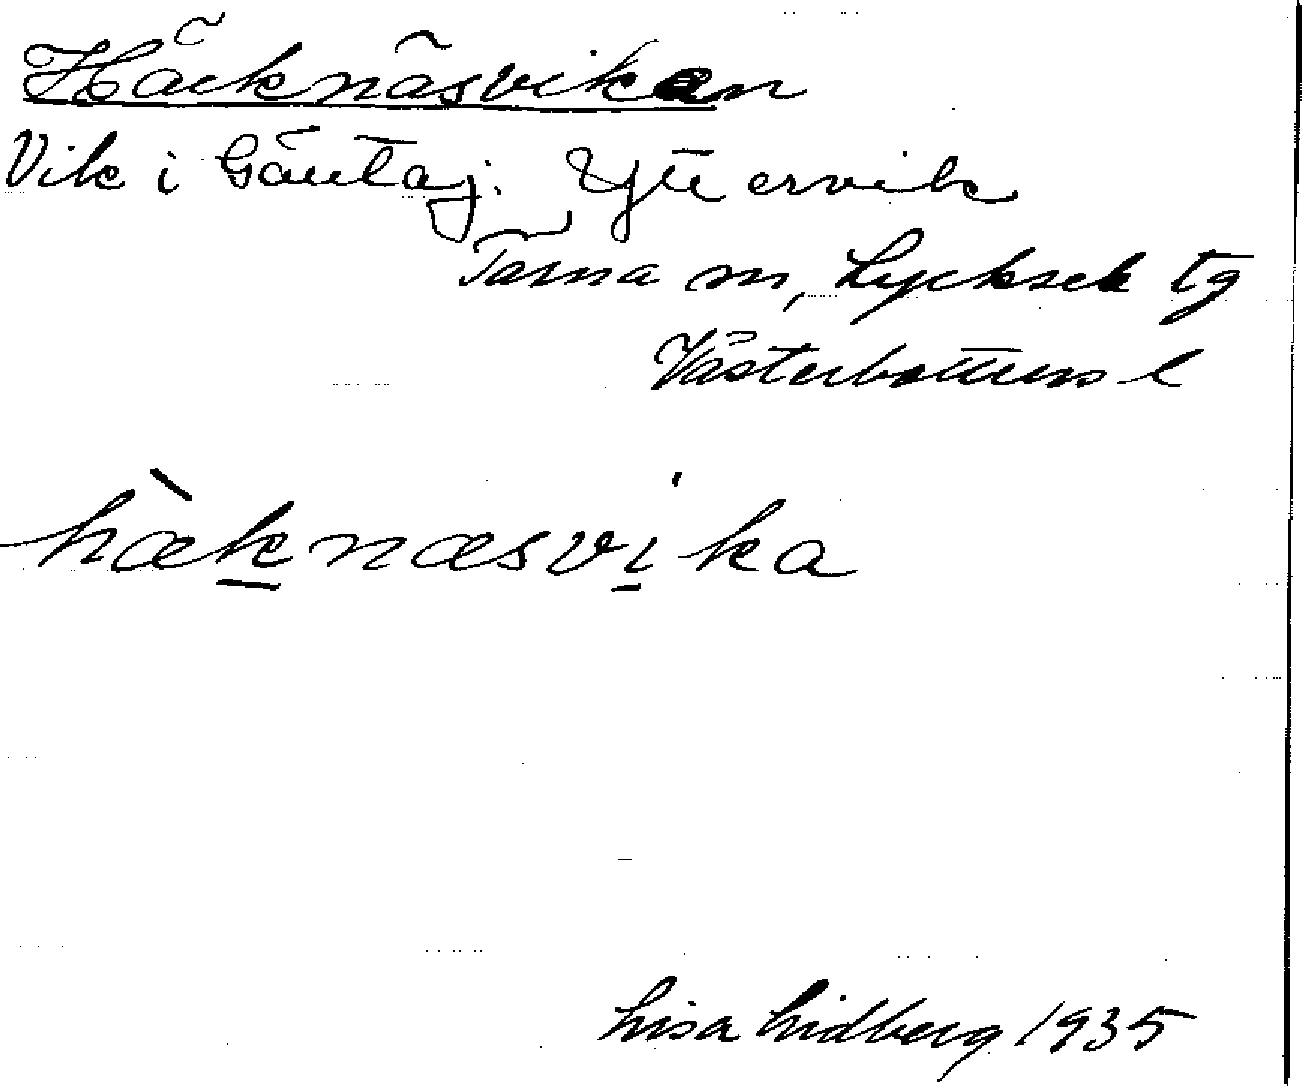 Häcknäsvikan
Vik i Gäutaj. Yttervik
Tärna m, Lycksele tg
Västerbottens l
hæknæsvika
Lisa Lidberg 1935